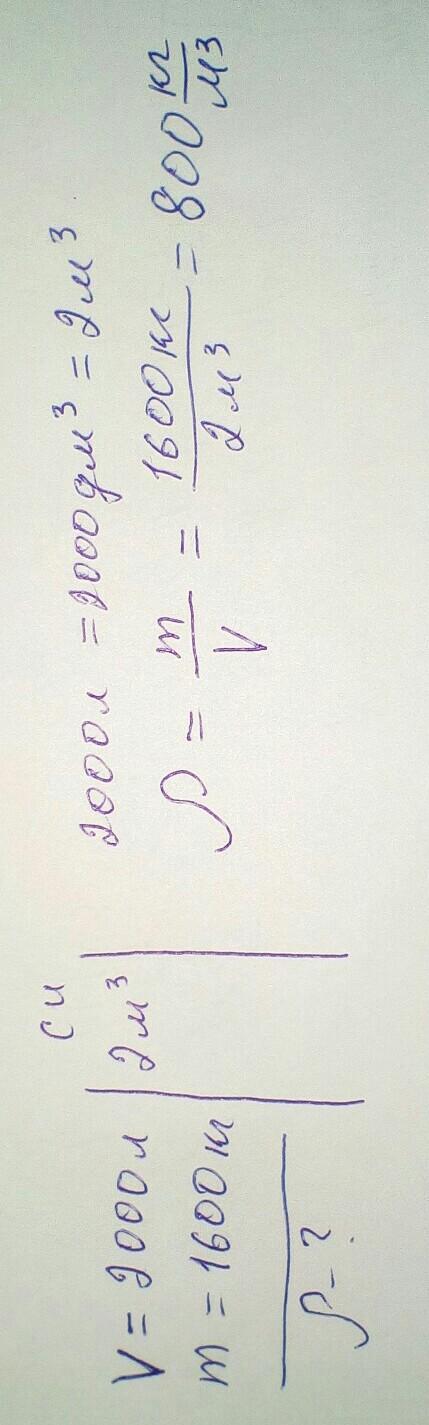 V = 2000л
m = 1600кг
ρ - ?
СИ
2м³
2000л = 2000дм³ = 2м³
ρ = m/V = 1600кг/2м³ = 800 кг/м³